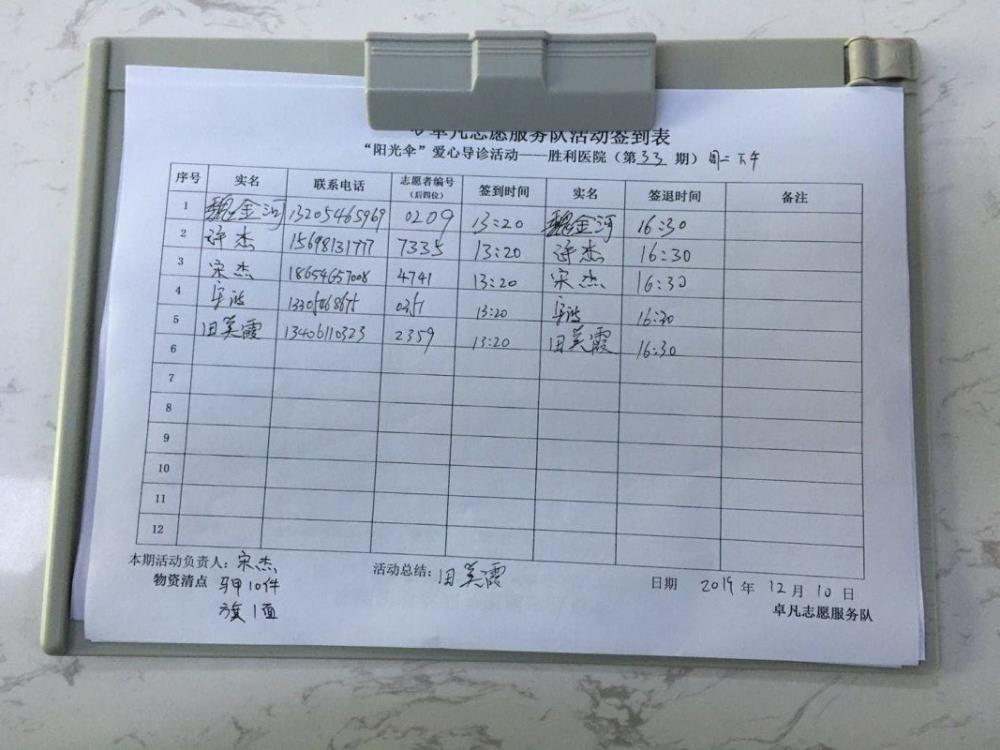 卓凡志愿服务队活动签到表
“阳光伞”爱心导诊活动——胜利医院（第33期） 周二下午
序号 实名 联系电话 志愿者编号（后四位） 签到时间 实名 签退时间 备注
1 魏金河 13205465969 0209 13:20 魏金河 16:30
2 许杰 15698131777 7335 13:20 许杰 16:30
3 宋杰 18654657008 4741 13:20 宋杰 16:30
4 13:20 16:30
5 田美霞 13406110323 2359 13:20 田美霞 16:30
6
7
8
9
10
11
12
本期活动负责人：宋杰 活动总结：田美霞 日期 2019年12月10日
物资清点 马甲10件 卓凡志愿服务队
旗1面